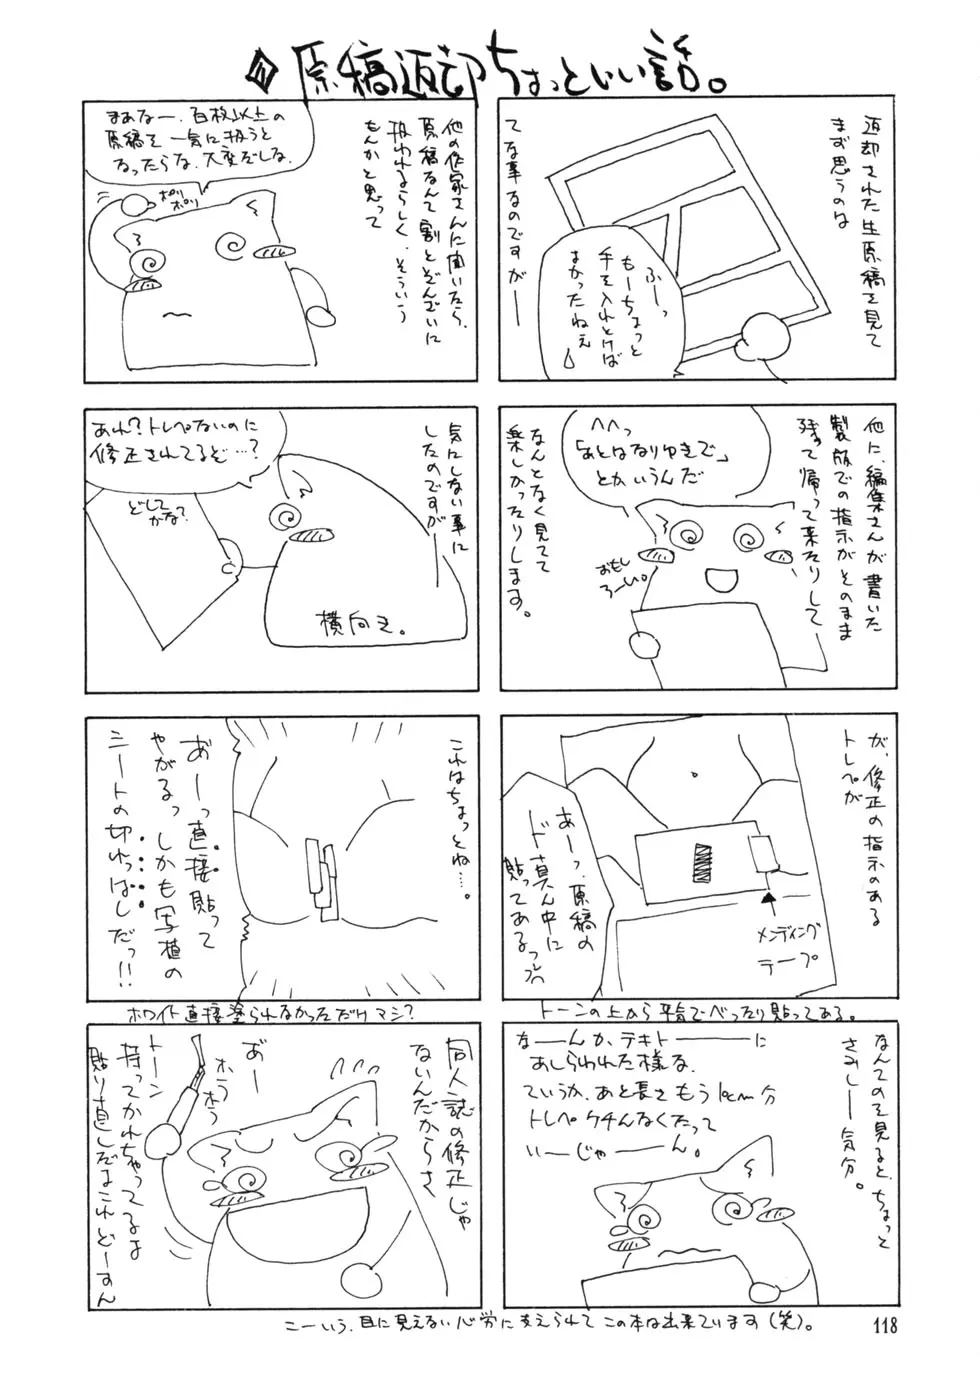 原稿返却ちょっといい話。
返却された生原稿を見て
まず思うのは
ふーっ
もーちょっと
手を入れとけば
よかったねぇ
てな事なのですが――
他に、編集さんが書いた
製版での指示がそのまま
残って帰って来たりして――
へへっ
「あとはなりゆきで」
とかいうんだ
おもし
ろーい。
なんとなく見てて
楽しかったりします。
が、修正の指示のある
トレペが
あーっ、原稿の
ド真ん中に
貼ってあるっ
メンディング
テープ
トーンの上から平気でべったり貼ってある。
なんてのを見ると、ちょっと
さみしー気分。
なーんか、テキトーに
あしらわれた様な。
ていうか、あと長さもう10cm分
トレペケチんなくたって
いーじゃーん。
他の作家さんに聞いたら、
原稿なんて割とぞんざいに
扱われるらしく、そういう
もんかと思って
まあなー、百枚以上の
原稿を一気に扱うと
なったらな、大変だしな。
ポリ
ポリ
気にしない事に
したのですが――
あれ?トレペないのに
修正されてるぞ…?
どして
かな?
横向き。
これはちょっとね…。
あーっ直接貼って
やがるっしかも写植の
シートの切れっぱしだっ!!
ホワイト直接塗られなかっただけマシ?
同人誌の修正じゃ
ないんだからさ
あ゛ー
ホラ
ホラ
トーン
持ってかれちゃってるよ
貼り直しだよこれどーすん
こーいう、目に見えない心労に支えられてこの本は出来ています(笑)。
118